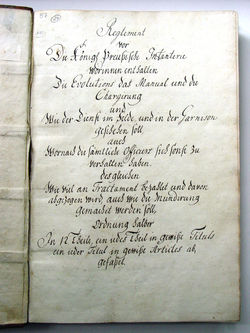 Reglement
vor
Die Königl. Preußische Infanterie
worinnen enthalten
Die Evolutions das Manual und die
Chargirung
und
Wie der Dienst im Felde und in der Garnison
geschehen soll
auch
Wornach die sämtliche Officiers sich sonst zu
verhalten haben.
desgleichen
Wie viel an Tractament bezahlet und davon
abgezogen wird auch wie die Mundirung
gemachet werden soll,
Ordnung halber
In 12 Theile, ein jedes Theil in gewiße Tituls
ein jeder Titul in gewiße Articles ab
gefaßet.